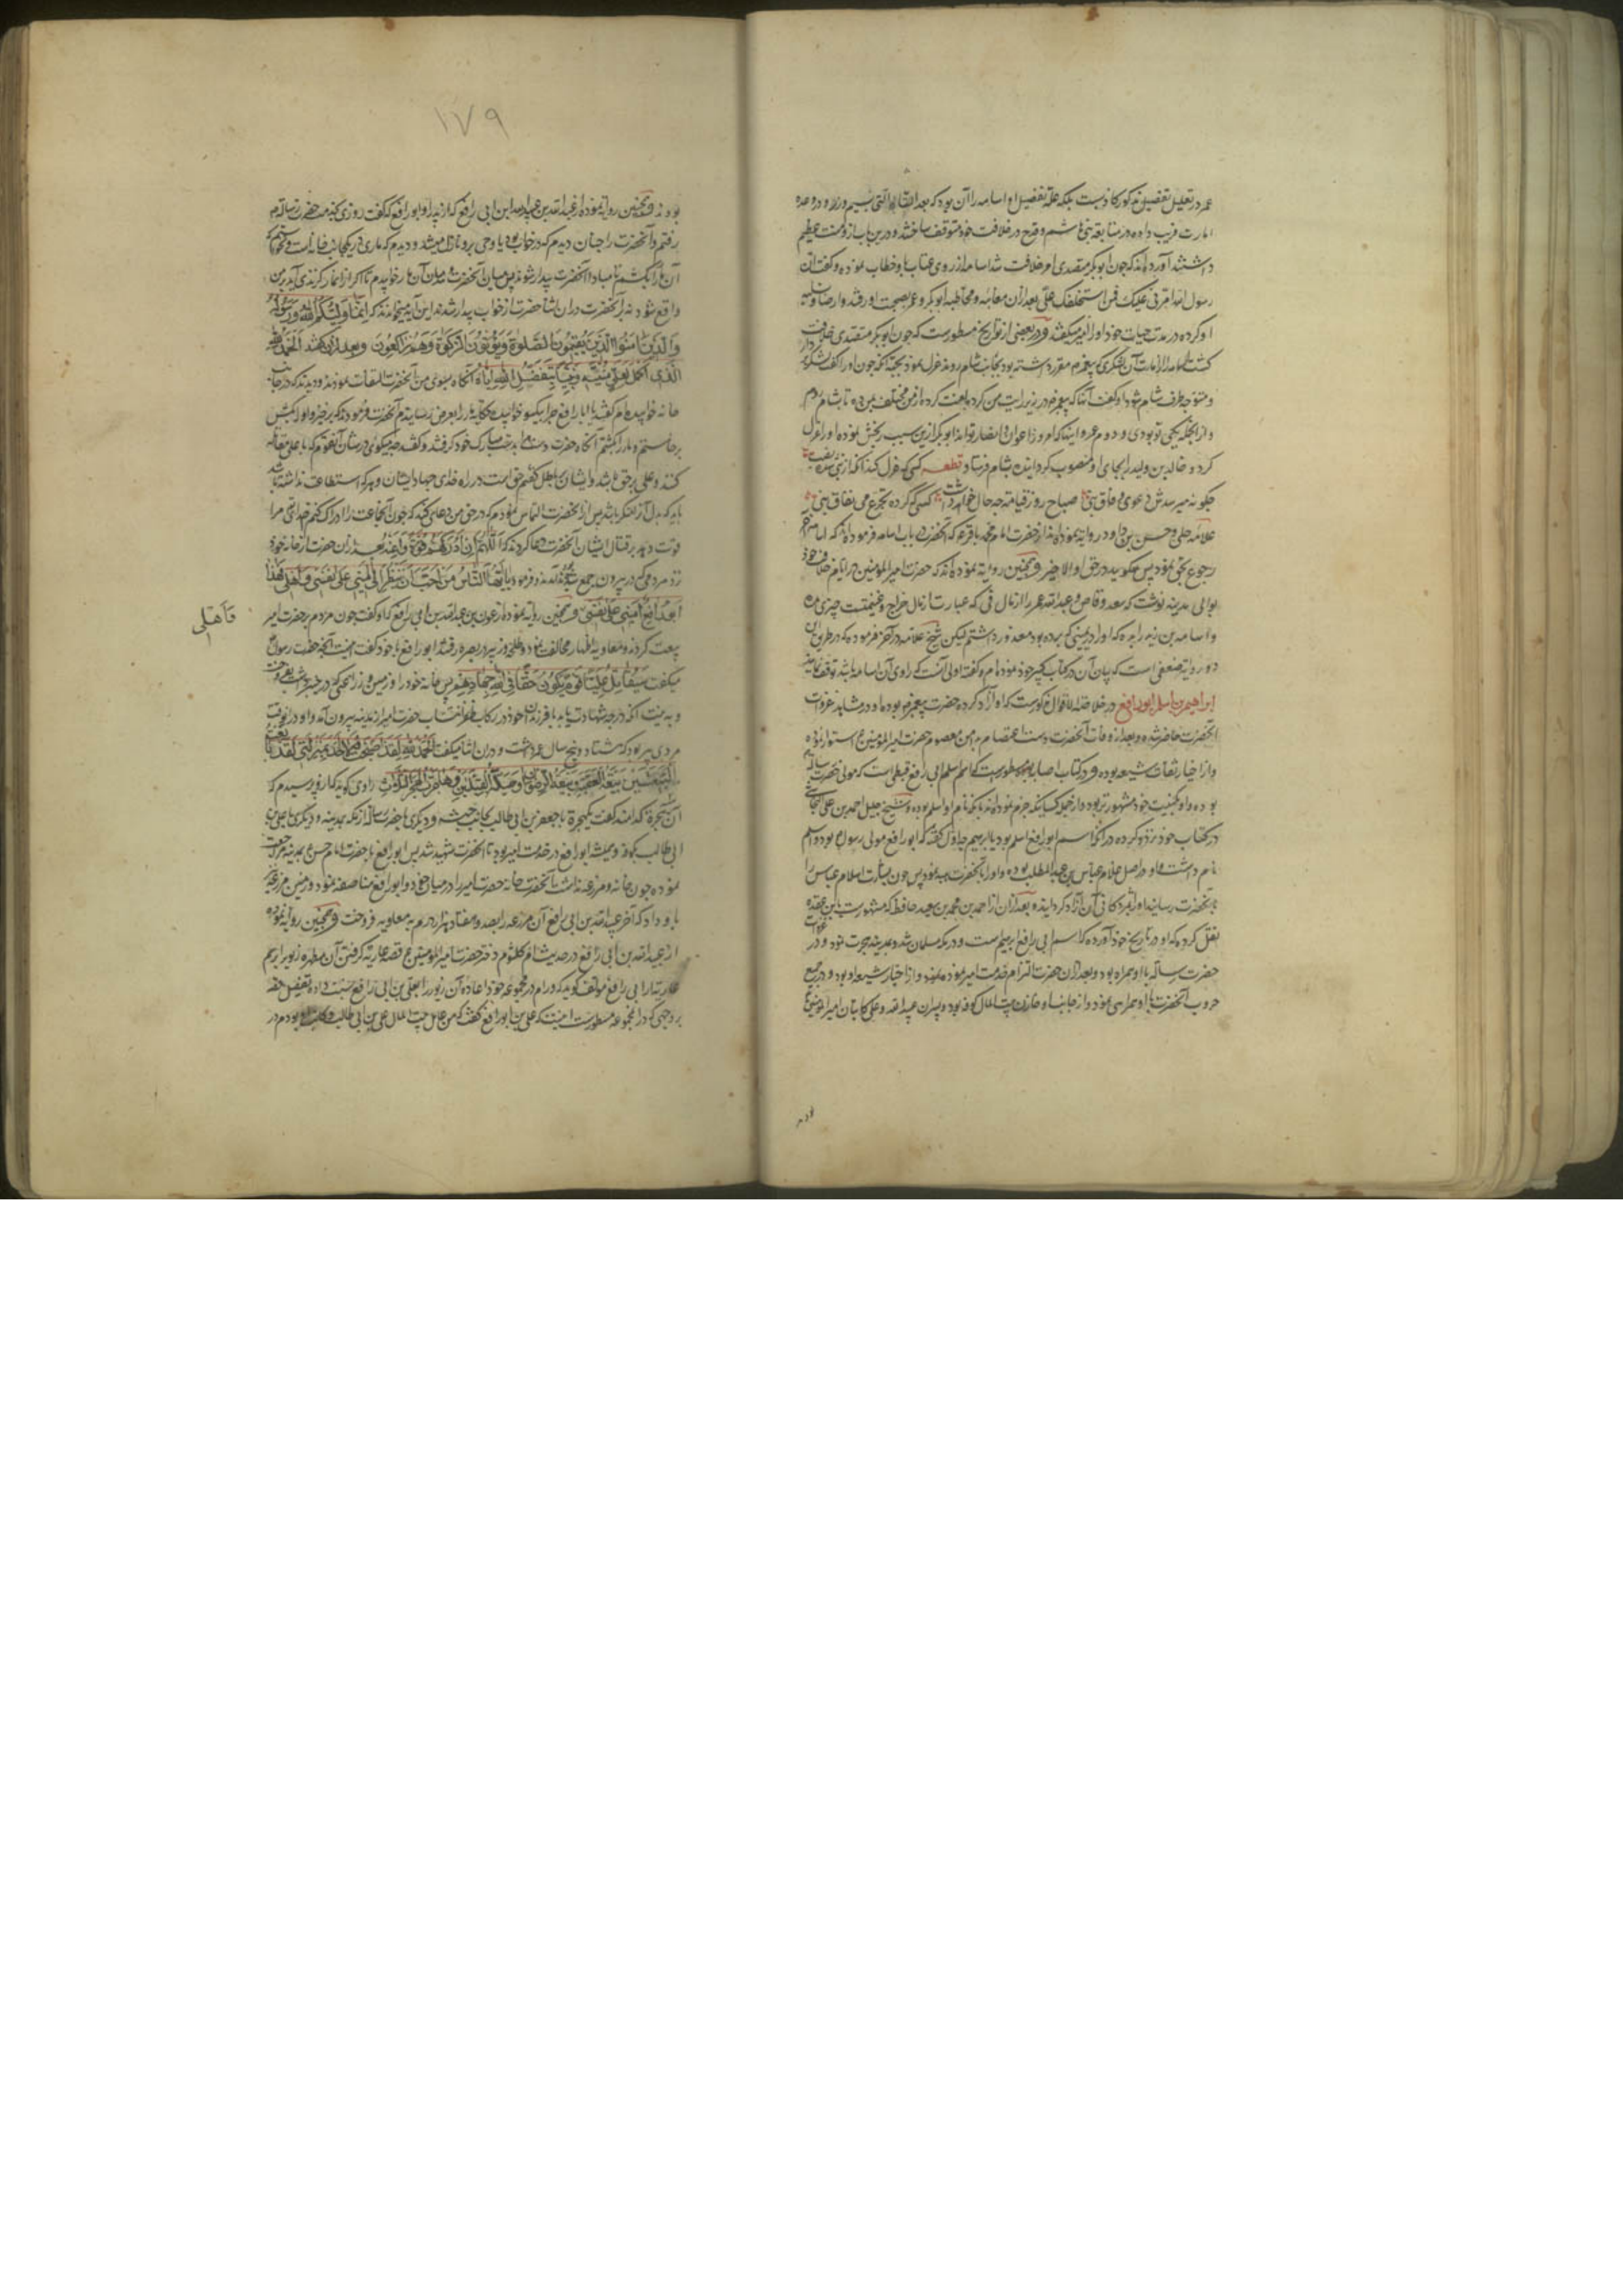 عمر در تعلیل تفضیل مذکور کاذبست بلکه علة تفضیل او اسامه را آن بود که بعد
امارت فریب داده در متابعة بنی هاشم و قدح در خلافت خود متوقف ساختند و درین باب ازو منت عظیم
داشتند آورده‌اند که چون ابوبکر متصدی امر خلافت شد اسامه از روی عتاب با و خطاب نموده و گفت ان
رسول الله امرنی علیک فمن استخلفک علیّ بعد از آن معاتبه و مخاطبه ابوبکر و عمر بصحبت او رفتند و ارضا
او کرده در مدت حیات خود او را امیر میگفتند و در بعضی از تواریخ مسطورست که چون ابوبکر متصدی خلافت
کشت اسامه را از امارت آن لشکری که پیغمبر مقرر داشته بود بجانب شام روند عزل نمود بجهة آنکه چون او را گفت
و متوجه طرف شام شو او گفت آنها که پیغمبر در زیر رایت من کرده با هست کرده از من مختلف من ده تا بشام روم
و از انجمله یکی تو بودی و دوم عمر و اینها که امروز اعوان و انصار تواند ابوبکر ازین سبب رنجش نموده او را عزل
کرد و خالد بن ولید را بجای او منصوب کردانیده بشام فرستاد قطعه کسی که عزل کند آنکه از نبی
چگونه میرسدش دعوی وفاق نبی صباح روز قیامة چه حال خواهد داشت کسی که کرده تجرع می نفاق نبی
علامه حلی و حسن بن داود روایة نموده‌اند از حضرت امام محمد باقر که آنحضرت در باب اسامه فرموده‌اند که اسامه
رجوع بحق نمود پس مگویید در حق او الا خیر و همچنین روایة نموده‌اند که حضرت امیرالمؤمنین در ایام خلافت خود
بوالی مدینه نوشت که سعد وقاص و عبدالله عمر را از مال فی که عبارت از مال خراج و غنیمتست چیزی مده
و اسامه بن زید را بده که او را در یمینی که برده بود معذور داشتم لیکن شیخ علامه در آخر فرموده که در طریق این
دو روایة ضعفی است که بیان آن در کتاب کبیر خود نموده‌ام و گفته اولی آنست که راوی آن اسامه باشد توقف نمایند
ابراهیم بن اسلم ابو رافع در خلاصة الاقوال مذکورست که او آزاد کرده حضرت پیغمبر بوده و او در مشاهد غزوات
آنحضرت حاضر شده و بعد از وفات آنحضرت دست اعتصام بدامن معصوم حضرت امیرالمؤمنین استوار نموده
و از اخیار ثقات شیعه بوده و در کتاب اصابه مسطورست که اسم اسلم ابی رافع قبطی است که مولی حضرت رسالة
بوده و او بکنیت خود مشهورتر بوده و از جمله کسانیکه جزم نموده‌اند بآنکه نام او اسلم بوده و شیخ جلیل احمد بن علی النجاشی
در کتاب خود تردد کرده در آنکه اسم ابو رافع اسلم بود یا ابرهیم چه اول گفته که ابو رافع مولی رسول بود و اسلم
نام داشت و او در اصل غلام عباس بن عبدالمطلب بوده و او را بآنحضرت هبه نمود پس چون بشارت اسلام عباس را
بآنحضرت رسانید او را بمژدکانی آن آزاد گردانیده بعد از آن از احمد بن محمد بن سعید حافظ که مشهورست بابن عقده
نقل کرده که او در تاریخ خود آورده که اسم ابی رافع ابرهیم است و در مکه مسلمان شد و بمدینه هجرت نمود و در غزوات
حضرت رسالة با او همراه بود و بعد از آن حضرت التزام خدمت امیر نموده و از اخیار شیعه او بود و در جمیع
حروب آنحضرت با او همراهی نمود و از جانب او خازن بیت المال کوفه بود و پسران عبیدالله و علی کاتبان امیرالمؤمنین
بودند
۱۷۹
بودند و همچنین روایة نموده از عبدالله بن عبیدالله ابن ابی رافع که از پدر او ابو رافع که گفت روزی بخدمت حضرت رسالة
رفتم و آنحضرت را چنان دیدم که در خواب بود یا وحی برو نازل میشد و دیدم که ماری در یکجانب خانه است و نخواستم که
آن مار را بکشم تا مبادا آنحضرت بیدار شوند پس میان آنحضرت و میان آن مار خوابیدم تا اگر از مار گزندی آید بر من
واقع شود نه بر آنحضرت در آن اثنا حضرت از خواب بیدار شدند این آیه میخواندند که انما ولیکم الله ورسوله
والذین امنوا الذین یقیمون الصلوة ویؤتون الزکوة وهم راکعون و بعد از آن گفتند الحمد لله
الذی اکمل لعلی منیته وهنیئا لعلی بتفضیل الله ایاه آنگاه بسوی من آنحضرت التفات نمودند و دیدند که در جانب
خانه خوابیده‌ام گفتند یا ابا رافع چرا بیکسو خوابیده حکایة مار را بعرض رسانیدم آنحضرت فرمودند که برخیز و او را بکش
برخاستم و مار را کشتم آنگاه حضرت دست مرا بدست مبارک خود گرفتند و گفتند چه میگوئی در شأن آنقوم که با علی مقاتله
کنند و علی بر حق باشد و ایشان بر باطل گفتم حق است در راه خدای جهاد ایشان و هر که استطاعت نداشته باشد
باید که بدل آنرا منکر باشد پس از آنحضرت التماس نمودم که در حق من دعای کنید که چون آنجماعت را ادراک کنم خدای مرا
قوت دهد بر قتال ایشان آنحضرت دعا کردند که اللهم ان ادرکهم فقوه واعنه بعد از آن حضرت از خانه خود
نزد مردمی که در بیرون جمع شده بودند آمدند و فرمود یا ایها الناس من احب ان ینظر الی امینی علی نفسی واهلی فهذا
ابو رافع امینی علی نفسی و همچنین روایة نموده از عون بن عبیدالله بن ابی رافع که او گفت چون مردم بر حضرت امیر
بیعت کردند و معاویه اظهار مخالفت نمود و طلحه و زبیر در بصره رفتند ابو رافع با خود گفت اینست آنچه حضرت رسول
میگفت سیقاتل علیا قوم یکون حقا فی الله جهادهم پس خانه خود را و زمین و زراعتی که در خیبر داشت بفروخت
و به نیت آنکه درجه شهادت یابد با فرزندان خود در رکاب ظفر انتساب حضرت امیر از مدینه بیرون آمد و او در آنوقت
مردی پیر بود که هشتاد و پنج سال عمر داشت و در آن اثنا میگفت الحمد لله لقد اصبحت وما احد بمنزلتی لقد بایعت
البیعتین بیعة العقبة وبیعة الرضوان وصلیت القبلتین وهاجرت الهجر الثلاث راوی گوید که از او پرسیدم که
آن سه هجرة کدامند گفت یکهجرة با جعفر بن ابی طالب بجانب حبشه و دیگری با حضرت رسالة از مکه بمدینه و دیگری با علی بن
ابی طالب بکوفه و همیشه ابو رافع در خدمت امیر بود تا آنحضرت شهید شد پس ابو رافع با حضرت امام حسن بمدینه مراجعت
نموده چون خانه و مزرعه نداشت آنحضرت خانه حضرت امیر را در میان خود و ابو رافع مناصفه نمود و زمین مزرعه
باو داد که آخر عبیدالله بن ابی رافع آن مزرعه را بصد و هفتاد هزار درم به معاویه فروخت و همچنین روایة نموده
از عبیدالله بن ابی رافع در حدیث ام کلثوم دختر حضرت امیرالمؤمنین قصه عاریة گرفتن آن مطهره زیور ابرهیم
عاریة از ابی رافع مولف گوید که ورام در مجموعه خود اعاده آن زیور را بعلی بن ابی رافع نسبت داده و تفصیل قصه
بر وجهی که در آن مجموعه مسطورست اینست که علی بن ابو رافع گفت که من عامل بیت المال علی بن ابی طالب و کاتب او بودم در
فاهلی